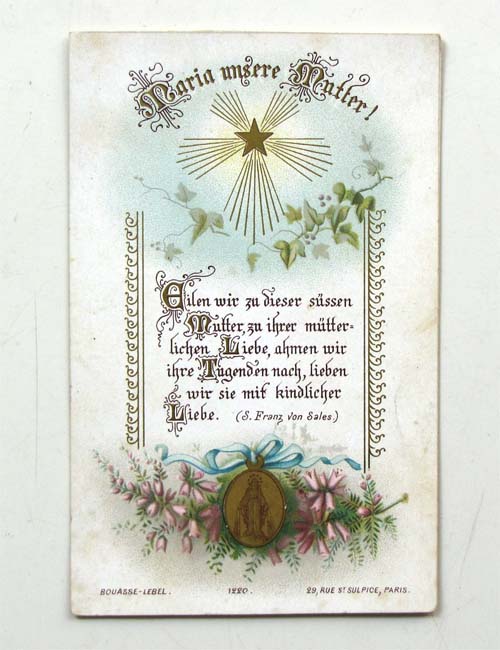 Maria unsere Mutter!
Eilen wir zu dieser süssen
Mutter, zu ihrer mütter-
lichen Liebe, ahmen wir
ihre Tugenden nach, lieben
wir sie mit kindlicher
Liebe. (S. Franz von Sales.)
BOUASSE-LEBEL. 1220. 29, RUE ST SULPICE, PARIS.